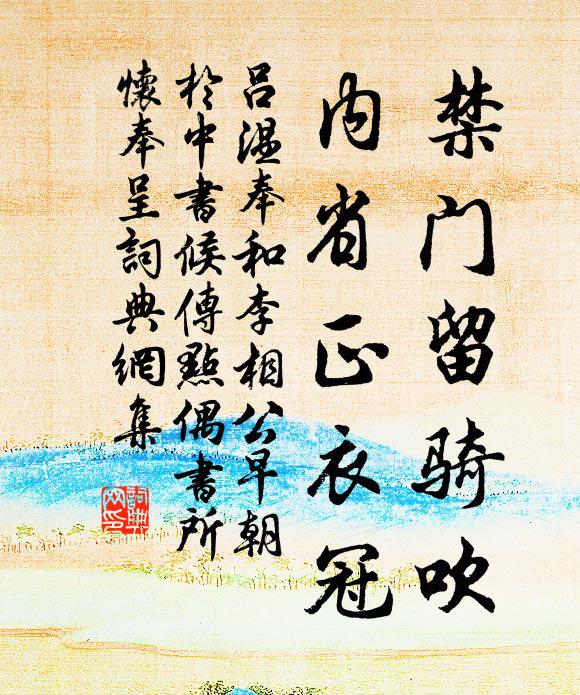 禁门留骑吹
内省正衣冠
吕温奉和李相公早朝
於中書候傳點偶書所
懷奉呈詞典網集
詞典網印